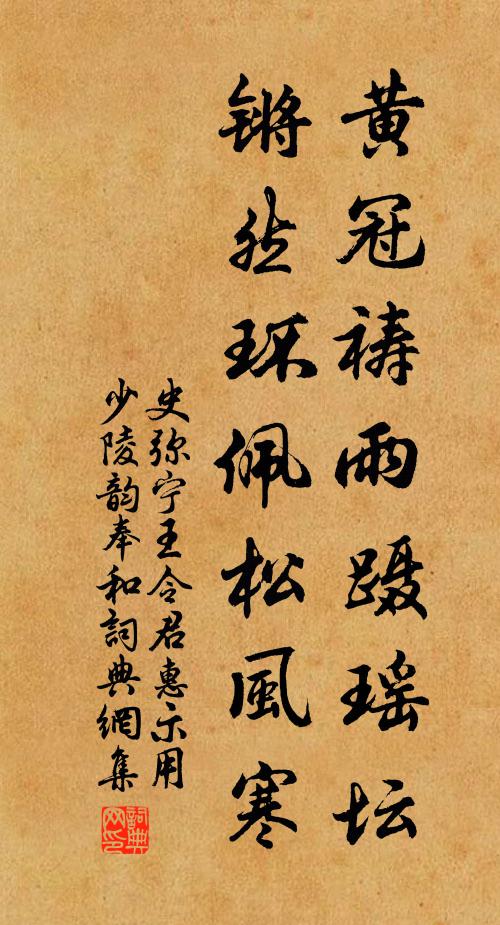 黄冠祷雨蹑瑶坛
锵然环佩松風寒
史弥宁王令君惠示用
少陵韵奉和詞典網集
詞典网印